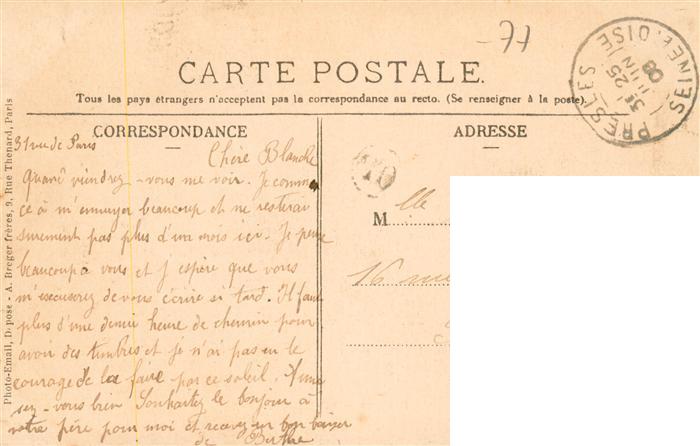 -77
CARTE POSTALE.
Tous les pays étrangers n'acceptent pas la correspondance au recto. (Se renseigner à la poste).
PRESLES SEINE-&-OISE
3E
25
JUIN
08
Photo-Email, D pose - A. Breger frères, 9, Rue Thenard, Paris
CORRESPONDANCE
31 rue de Paris
Chère Blanche
Quand viendrez-vous me voir. Je commen
ce à m'ennuyer beaucoup et ne resterai
surement pas plus d'un mois ici. Je pense
beaucoup à vous et j espère que vous
m'excuserez de vous écrire si tard. Il faut
plus d'une demie heure de chemin pour
avoir des timbres et je n'ai pas eu le
courage de la faire par ce soleil. Amu
sez-vous bien Souhaitez le bonjour à
votre père pour moi et recevez un bon baiser
de Berthe
ADRESSE
M lle
16 rue